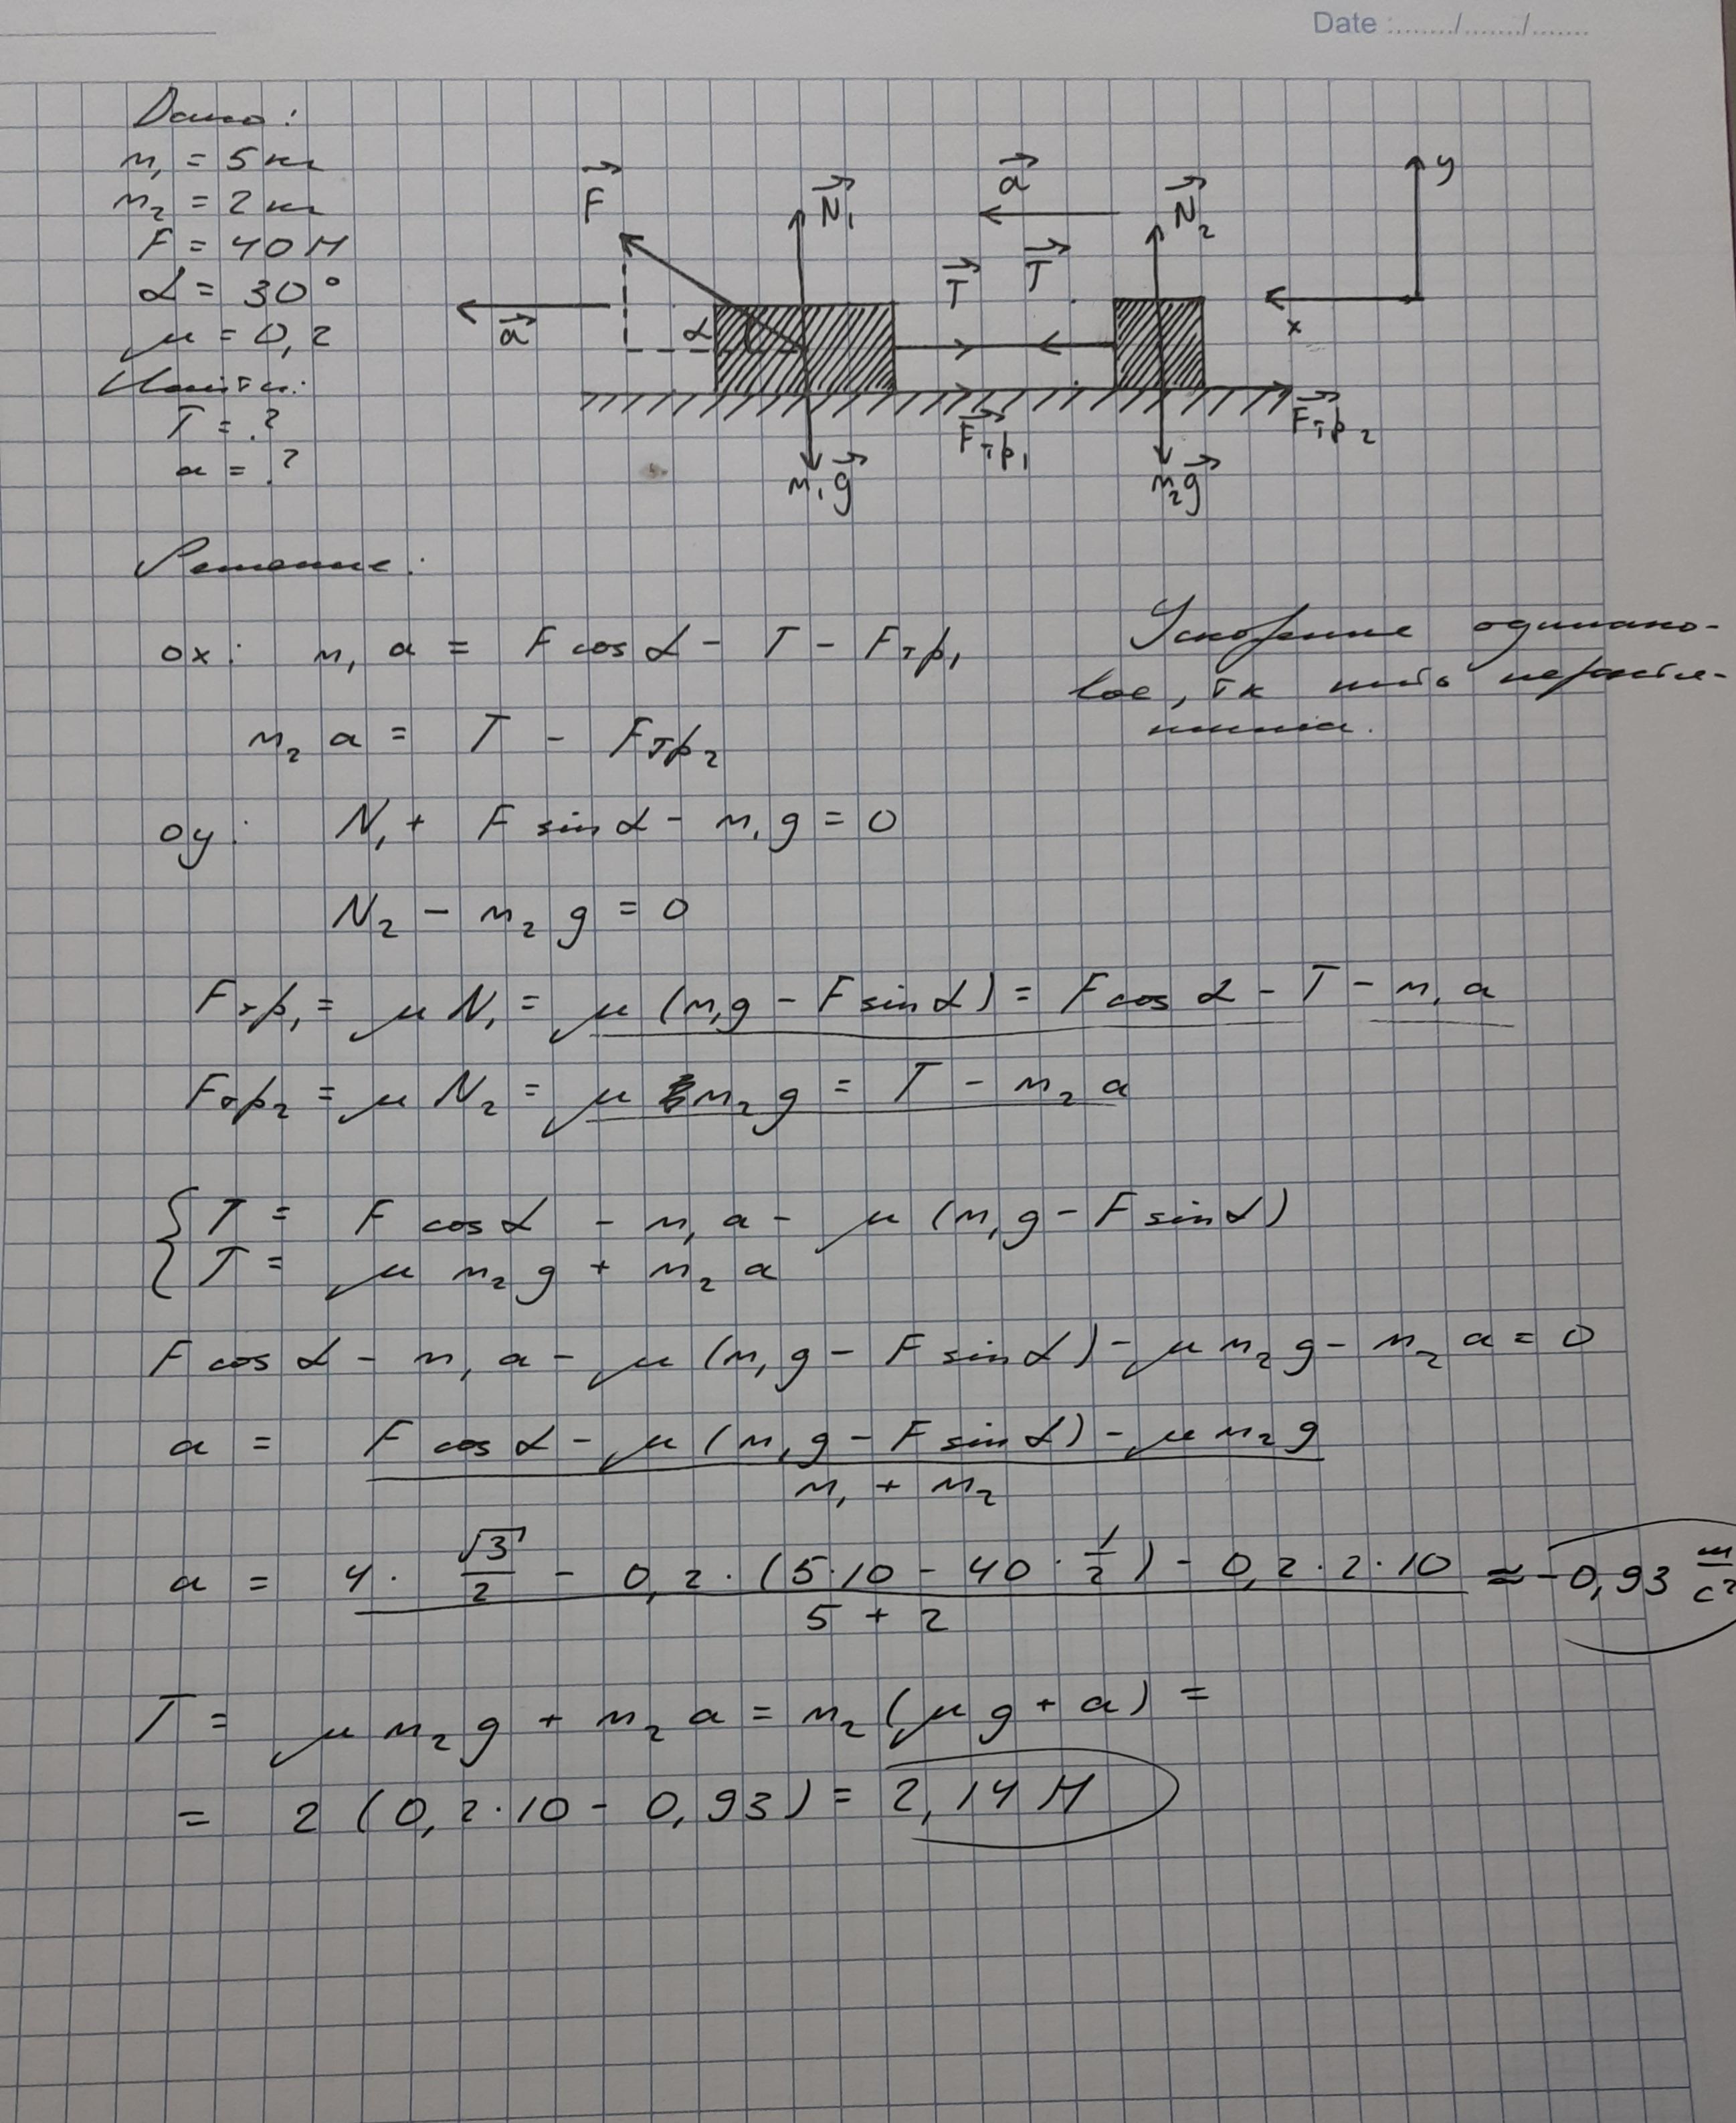 Date :......./......./.......
Дано:
m₁ = 5 кг
m₂ = 2 кг
F = 40 Н
α = 30°
μ = 0,2
Найти:
T = ?
a = ?
F N₁ a N₂ y
T T
a α x
Fтр₁ Fтр₂
m₁g m₂g
Решение:
ox: m₁ a = F cos α - T - Fтр₁
Ускорение одинако-
вое, тк нить нерастя-
жимая.
m₂ a = T - Fтр₂
oy: N₁ + F sin α - m₁ g = 0
N₂ - m₂ g = 0
Fтр₁ = μ N₁ = μ (m₁g - F sin α) = F cos α - T - m₁ a
Fтр₂ = μ N₂ = μ m₂ g = T - m₂ a
{ T = F cos α - m₁ a - μ (m₁ g - F sin α)
T = μ m₂ g + m₂ a
F cos α - m₁ a - μ (m₁ g - F sin α) - μ m₂ g - m₂ a = 0
a = (F cos α - μ (m₁ g - F sin α) - μ m₂ g) / (m₁ + m₂)
a = (4 · √3/2 - 0,2 · (5·10 - 40 · 1/2) - 0,2 · 2 · 10) / (5 + 2) ≈ -0,93 м/с²
T = μ m₂ g + m₂ a = m₂ (μ g + a) =
= 2 (0,2·10 - 0,93) = 2,14 Н